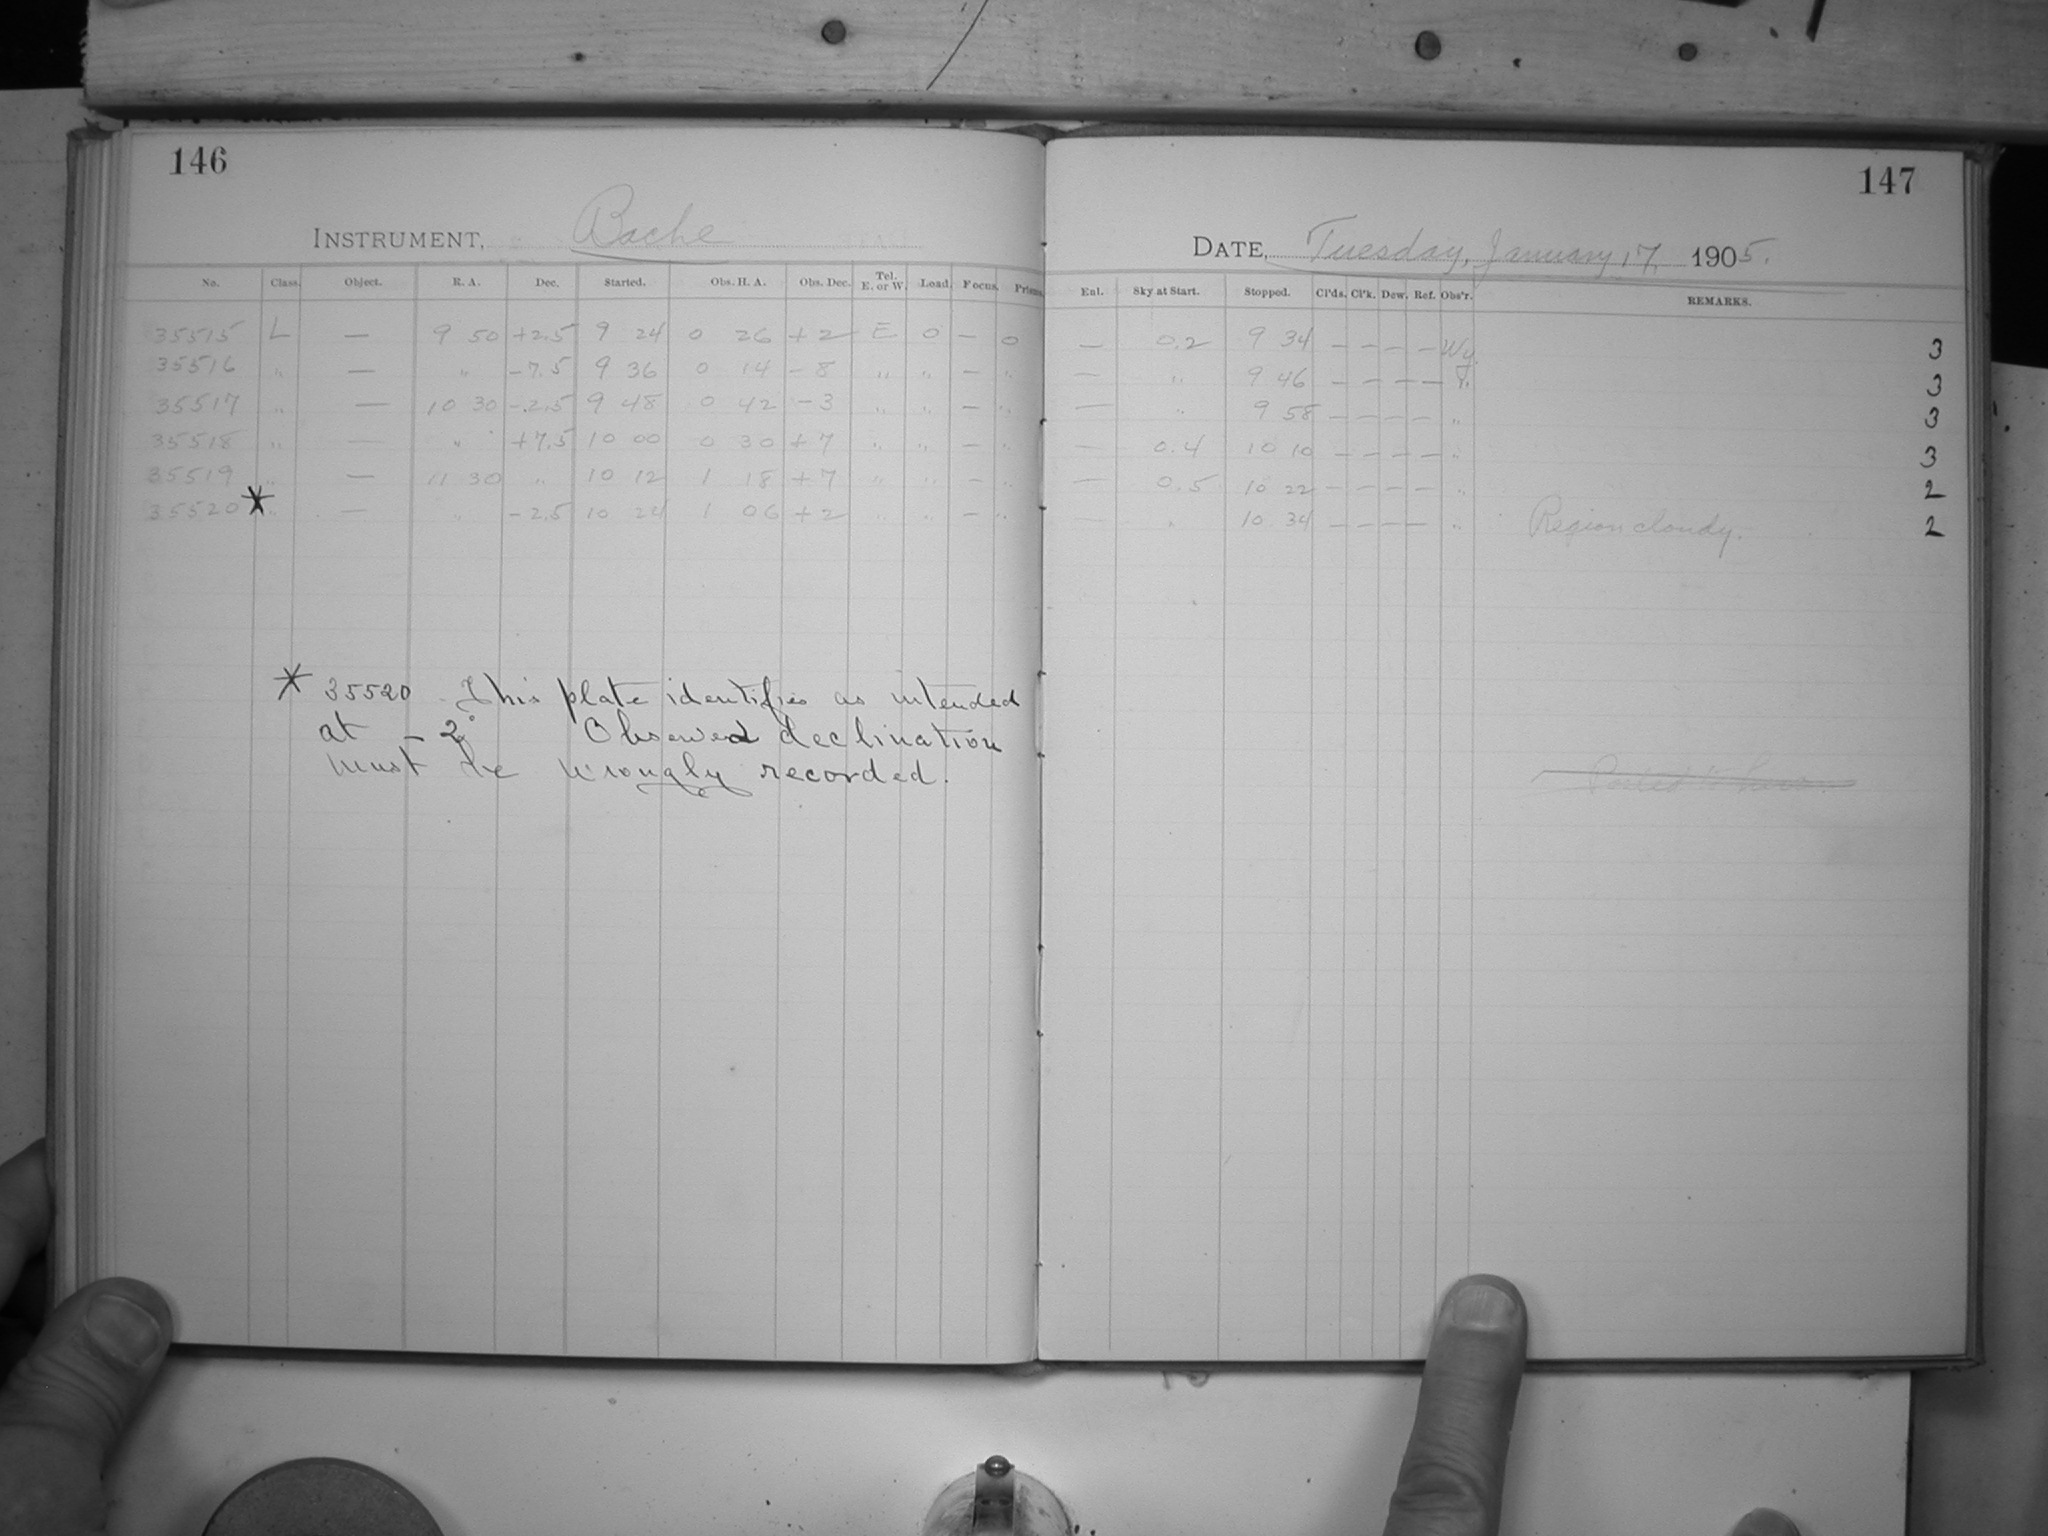 146
147
INSTRUMENT, Bache
DATE, Tuesday, January 17, 1905.
No. Class. Object. R. A. Dec. Started. Obs. H. A. Obs. Dec. Tel. E. or W. Load. Focus. Prisms. Enl. Sky at Start. Stopped. Cl'ds. Cl'k. Dew. Ref. Obs'r. REMARKS.
35515 L — 9 50 +2.5 9 24 0 26 +2 E 0 — 0 — 0.2 9 34 — — — — Wy. 3
35516 " — " -7.5 9 36 0 14 -8 " " — " — " 9 46 — — — — ". 3
35517 " — 10 30 -2.5 9 48 0 42 -3 " " — " — " 9 58 — — — — " 3
35518 " — " +7.5 10 00 0 30 +7 " " — " — 0.4 10 10 — — — — " 3
35519 " — 11 30 " 10 12 1 18 +7 " " — " — 0.5 10 22 — — — — " 2
35520 * " — " -2.5 10 24 1 06 +2 " " — " — " 10 34 — — — — " Region cloudy. 2
* 35520 This plate identifies as intended
at -2° Observed declination
must be wrongly recorded.
Posted to here.